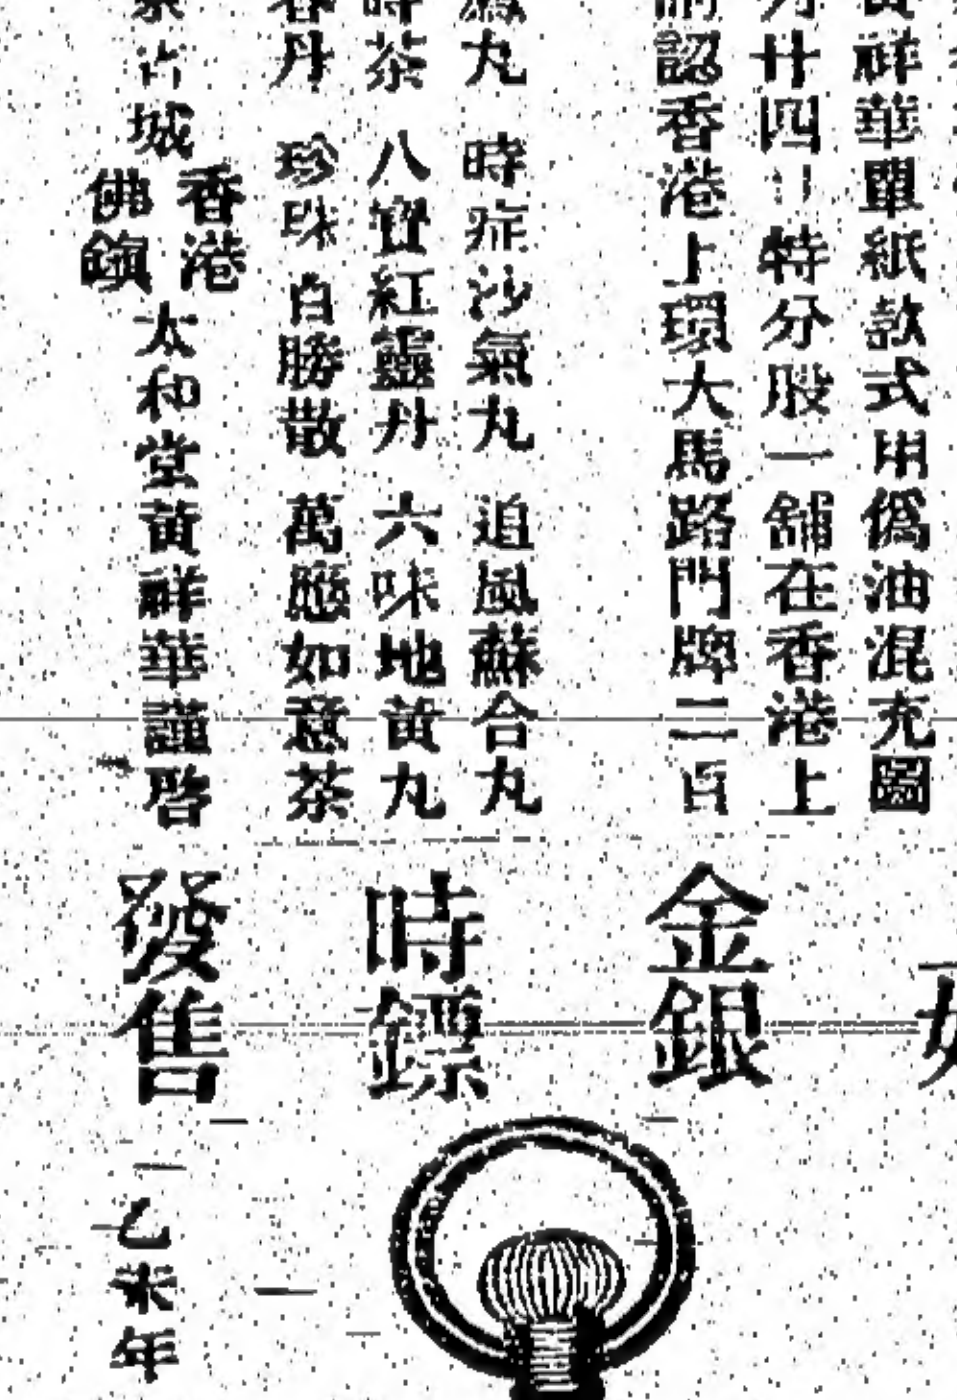 祥華單紙款式用僞油混充圖
廿四
特分股一舖在香港上
認香港上環大馬路門牌二百
丸　時症沙氣丸　追風蘇合丸
茶　八寶紅靈丹　六味地黃丸
丹　珍珠白勝散　萬應如意茶
城
香港
佛鎭
太和堂黃祥華謹啓
金銀
時鏢
發售
乙未年